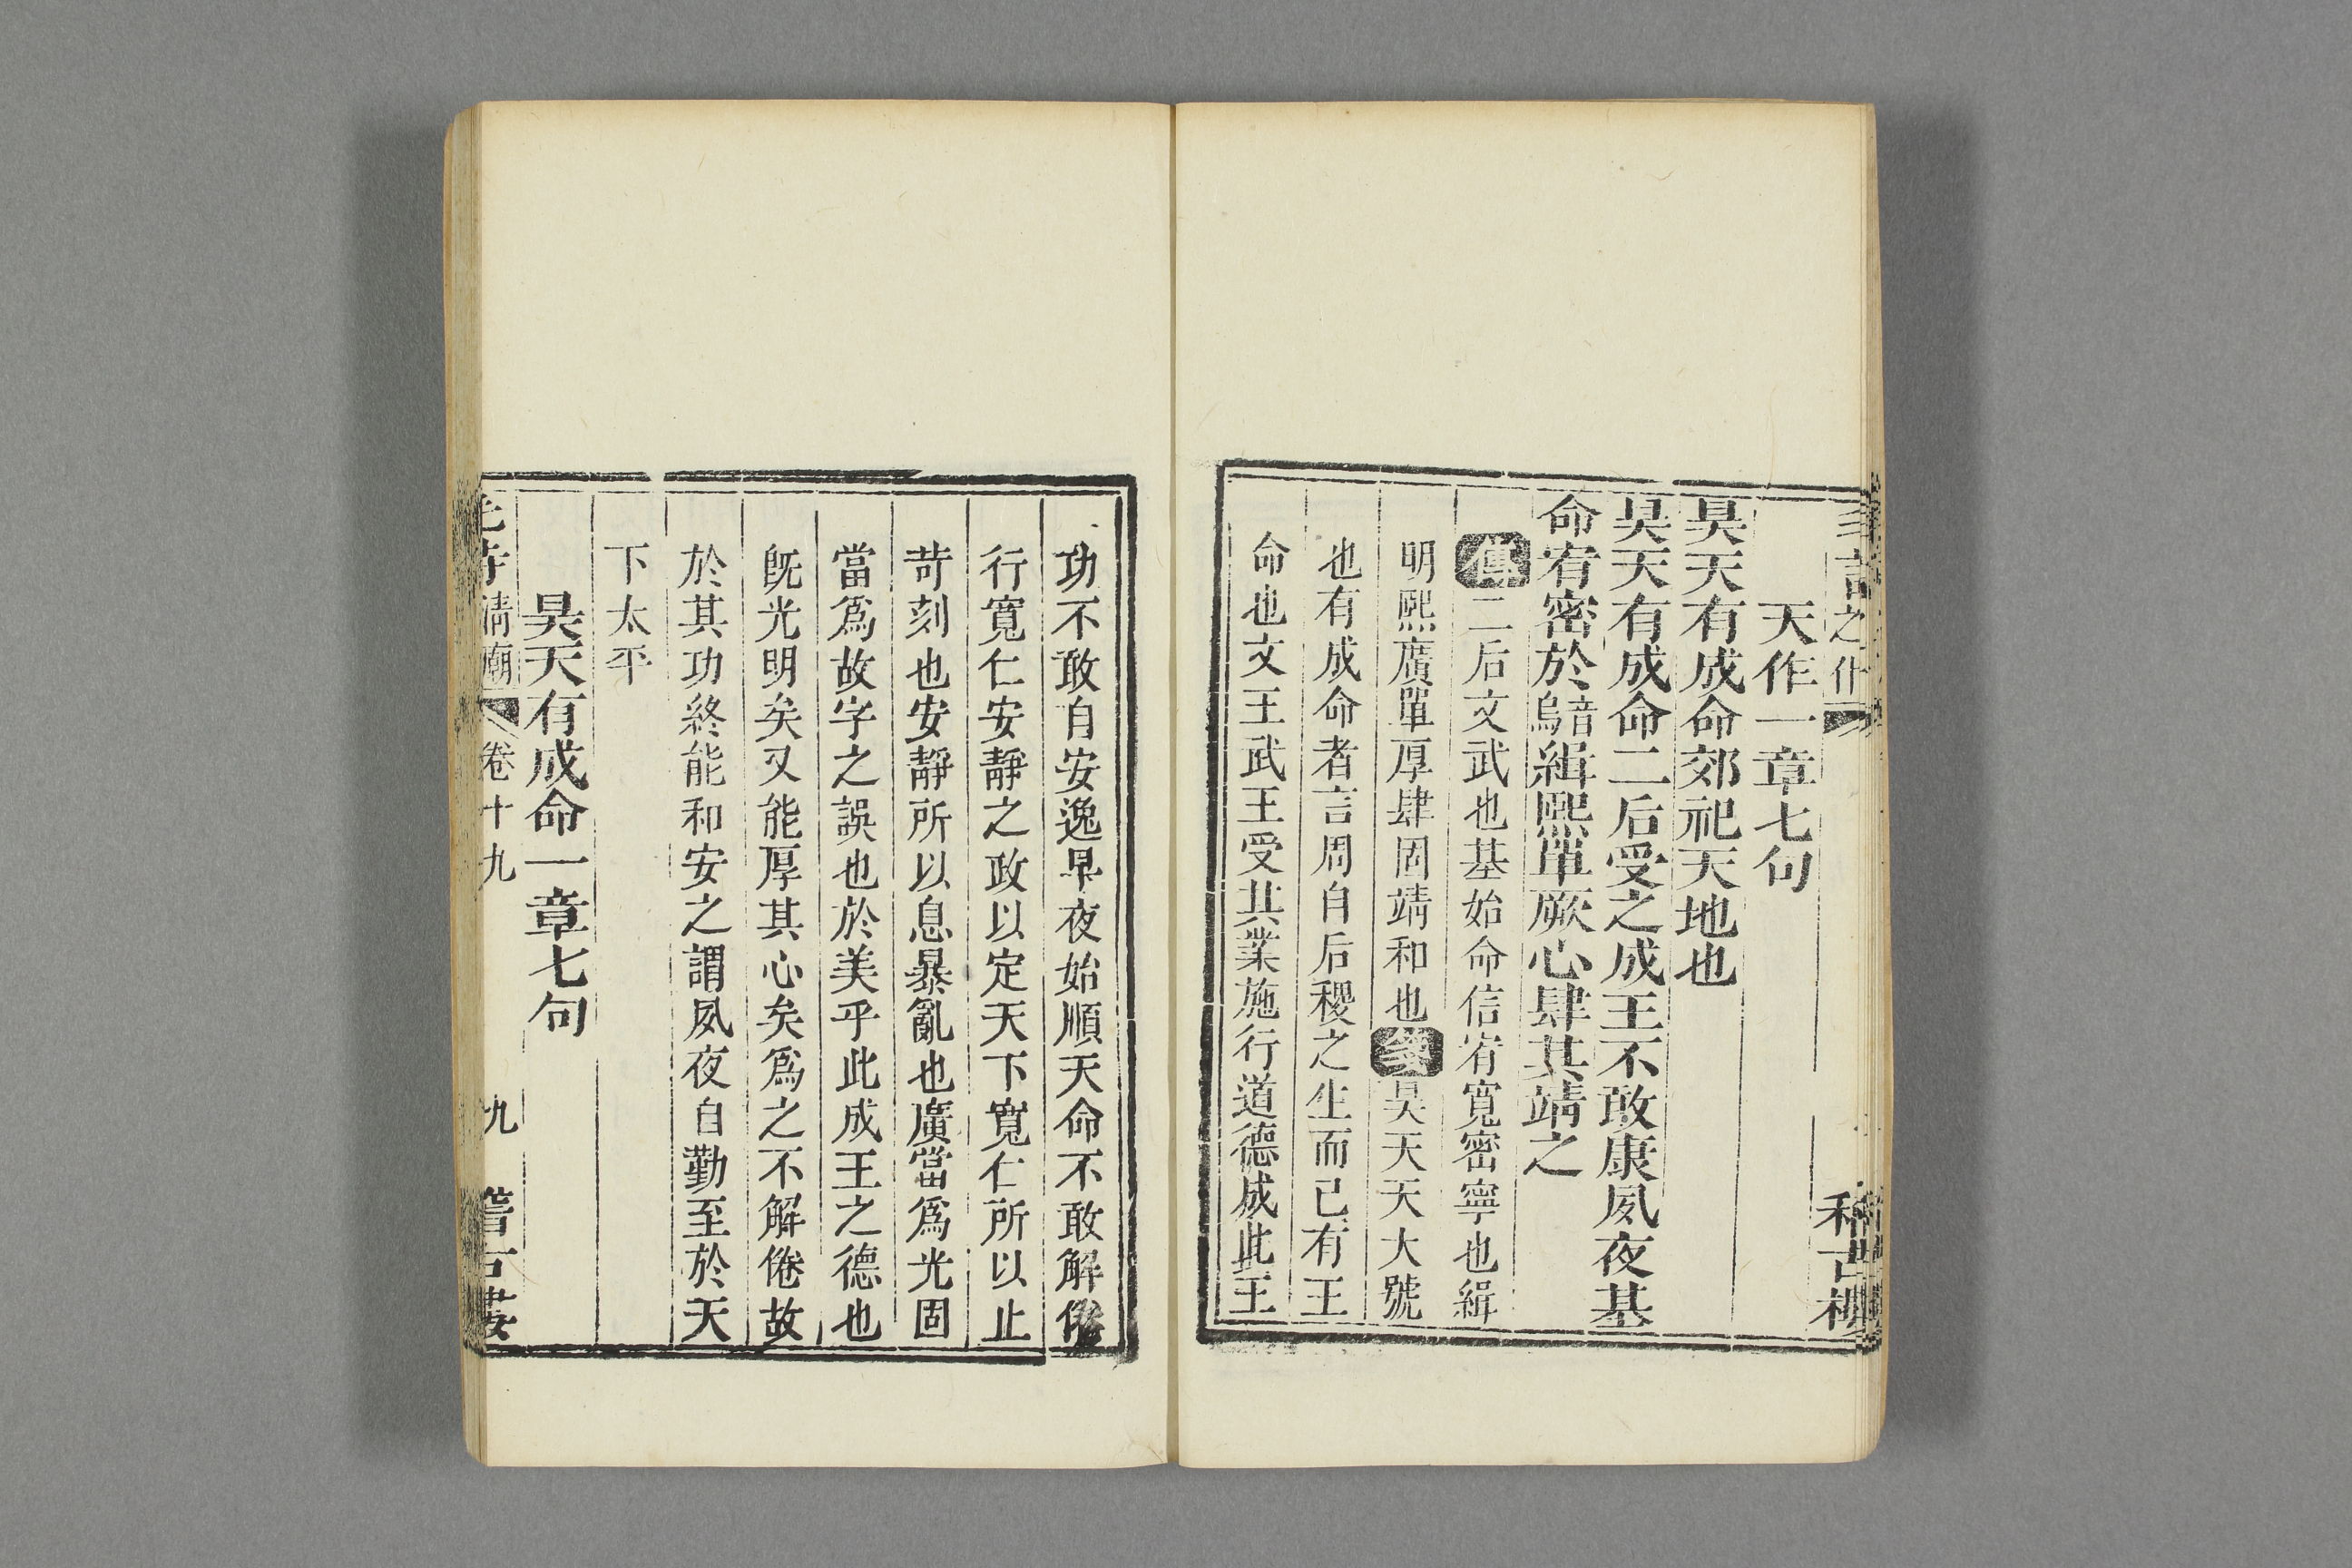 天作一章七句
昊天有成命郊祀天地也
昊天有成命二后受之成王不敢康夙夜基
命宥密於音烏緝熙單厥心肆其靖之
傳二后文武也基始命信宥寬密寧也緝
明熙廣單厚肆固靖和也箋昊天天大號
也有成命者言周自后稷之生而已有王
命也文王武王受其業施行道德成此王
功不敢自安逸早夜始順天命不敢解倦
行寬仁安靜之政以定天下寬仁所以止
苛刻也安靜所以息暴亂也廣當爲光固
當爲故字之誤也於美乎此成王之德也
旣光明矣又能厚其心矣爲之不解倦故
於其功終能和安之謂夙夜自勤至於天
下太平
昊天有成命一章七句
清廟 卷十九 九